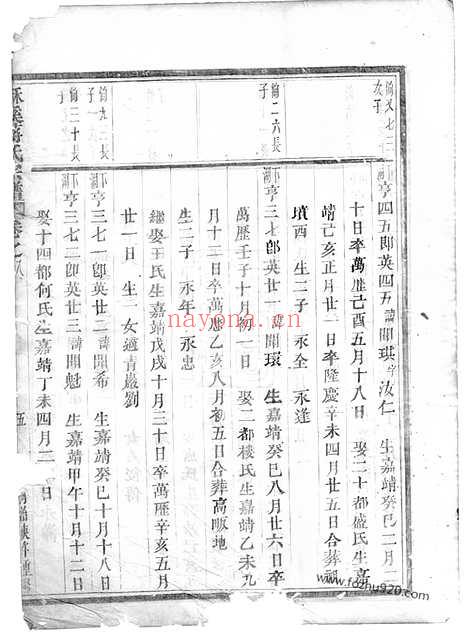 倫又七三
女子
亨四五郎英四五諱開琪字汝仁 生嘉靖癸巳二月二
十日卒萬曆己酉五月十八日 娶二十都盛氏生嘉
靖己亥正月廿一日卒隆慶辛未四月廿五日合葬祖
墳酉 生二子 永全 永逢
倫二六長
子
亨三七郎英廿一諱開環 生嘉靖癸巳八月廿六日卒
萬曆壬子十月初一日 娶二都樓氏生嘉靖乙未九
月十三日卒萬曆乙亥八月初五日合葬高畈地
生二子 永年 永忠
繼娶王氏生嘉靖戊戌十月三十日卒萬曆辛亥五月
廿一日 生一女適青巖劉
倫九三長
子
亨三七一郎英廿二諱開希 生嘉靖癸巳十月十八日
倫三十長
子
亨三七二郎英廿三諱開魁 生嘉靖甲午十月十二日
娶十四都何氏生嘉靖丁未四月二 日
氏宗譜 卷之八
五
nayona.cn
www.fozhu920.com